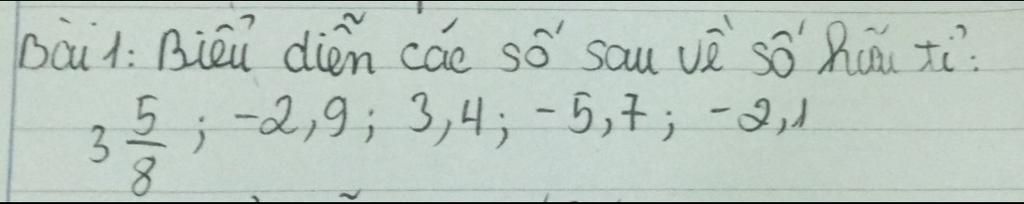 Bài 1: Biểu diễn các số sau về số hữu tỉ:
3 5/8 ; -2,9; 3,4; -5,7; -2,1